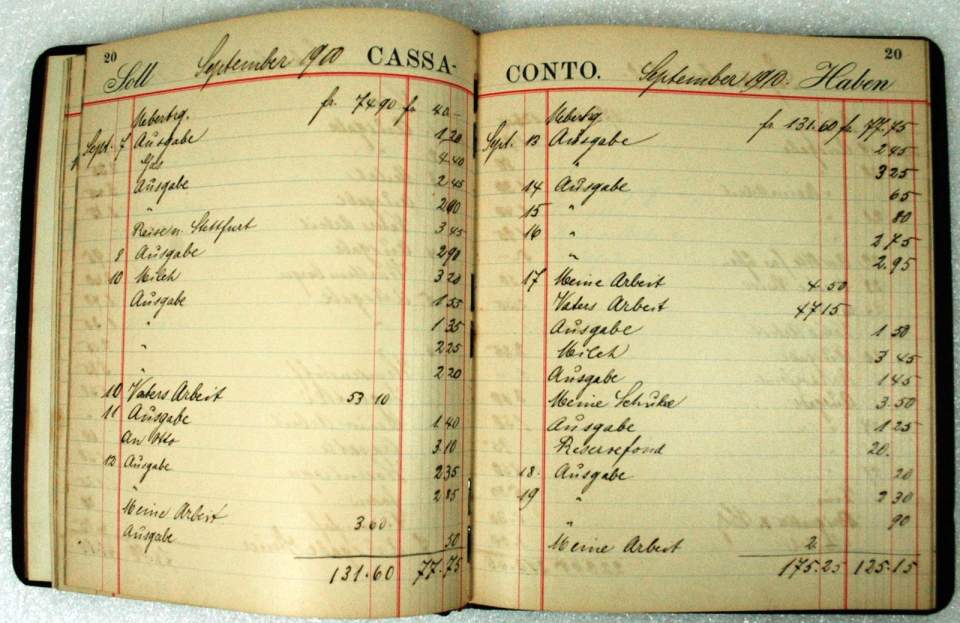 20 Soll September 1910 CASSA-
Uebertrg. fr. 74 90 fr. 40.-
Sept. 7 Ausgabe 1,20
Gas 4.40
Ausgabe 2 45
" 2 90
Reise n. Stettfurt 3 45
8 Ausgabe 2 90
10 Milch 3 20
Ausgabe 1 55
" 1 35
" 2 25
" 2 20
10 Vaters Arbeit 53 10
11 Ausgabe 1 40
An Otto 3.10
12 Ausgabe 2 35
" 2 85
Meine Arbeit 3.60
Ausgabe 50
131.60 77.75
CONTO. September 1910. Haben 20
Uebertrg. fr. 131.60 fr. 77.75
Sept. 13 Ausgabe 2 45
" 3 25
14 Ausgabe 65
15 " 80
16 " 2 75
" 2.95
17 Meine Arbeit 4.50
Vaters Arbeit 47 15
Ausgabe 1 50
Milch 3 45
Ausgabe 1 45
Meine Schuhe 3.50
Ausgabe 1 25
Reservefond 20.
18. Ausgabe 20
19 " 2 30
" 90
Meine Arbeit 2.
175.25 125.15